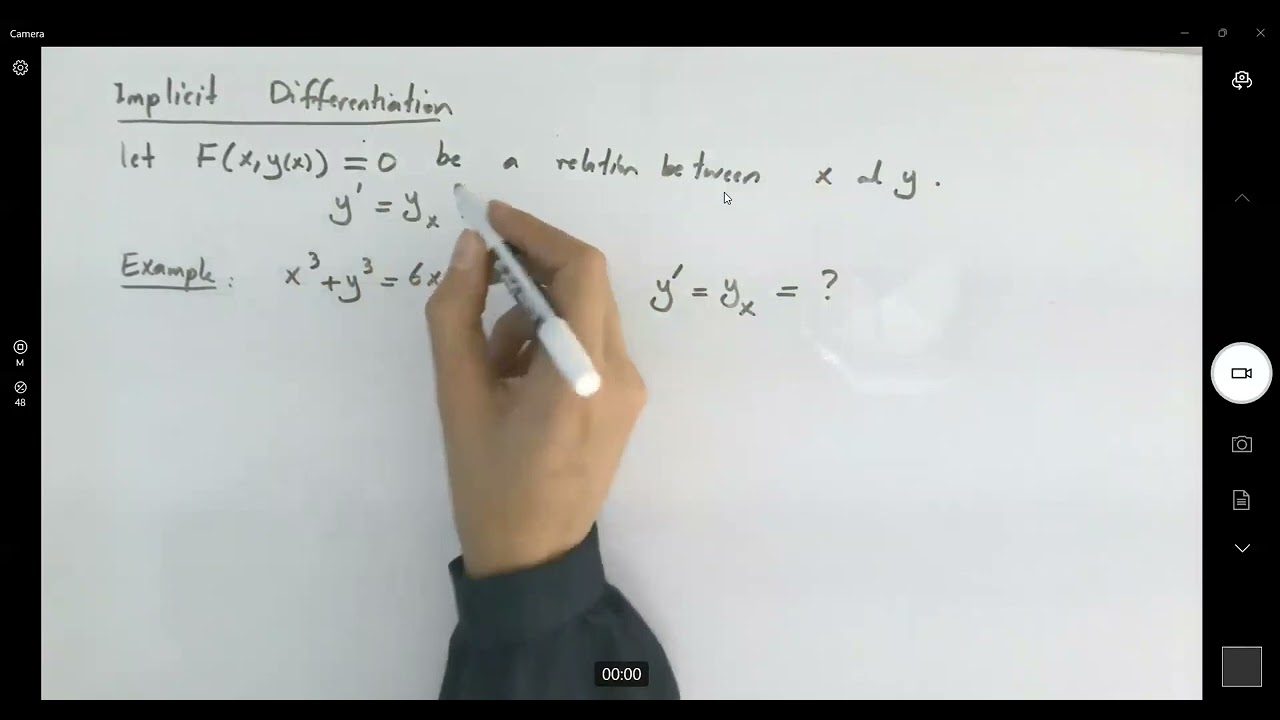 Camera
Implicit Differentiation
let F(x,y(x)) = 0 be a relation between x and y.
y' = yₓ
Example: x³+y³ = 6x y' = yₓ = ?
M
48
00:00